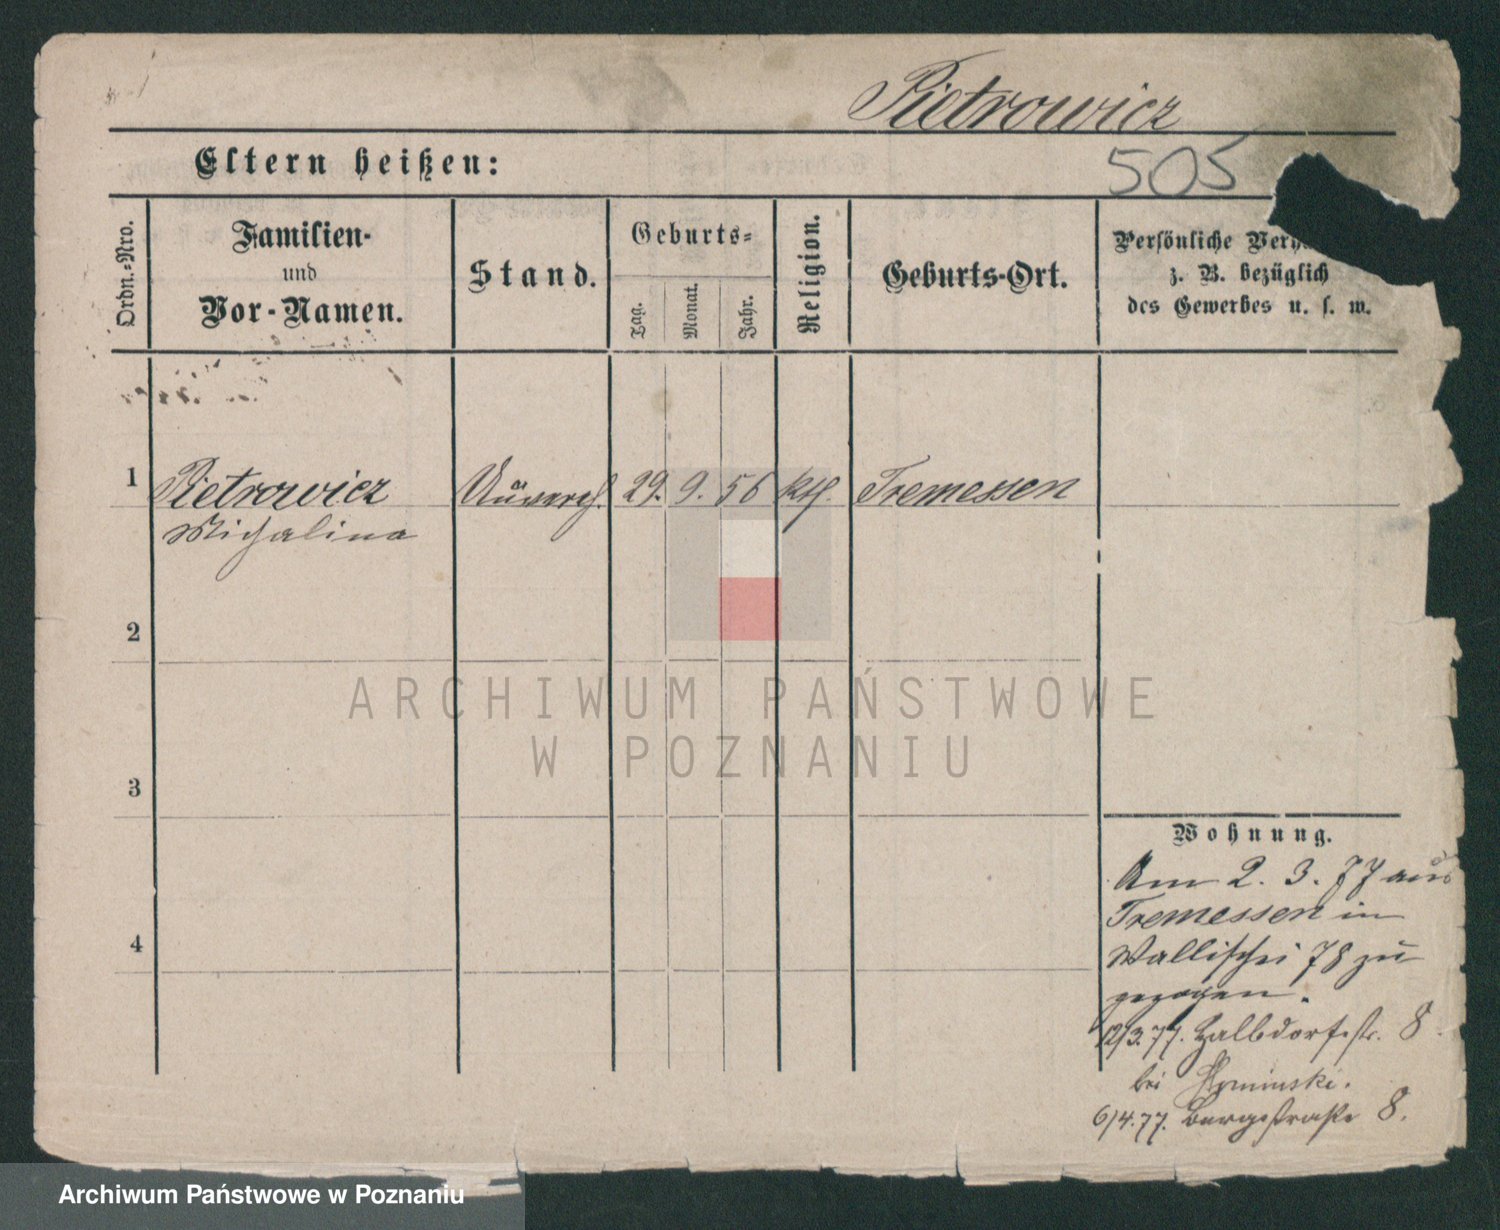 Pietrowicz
Eltern heißen:
505
Ordn.-Nro.
Familien-
und
Vor-Namen.
Stand.
Geburts-
Tag.
Monat.
Jahr.
Religion.
Geburts-Ort.
Persönliche Verh
z. B. bezüglich
des Gewerbes u. s. w.
1
Pietrowicz
29. 9. 56
kth.
Tremessen
Michalina
2
3
4
Wohnung.
Am 2. 3. 77 aus
Tremessen in
Wallischei 78 zu
gezogen.
12/3.77. Halbdorfstr. 8.
bei
6/4.77. Bergstraße 8.
ARCHIWUM PAŃSTWOWE
W POZNANIU
Archiwum Państwowe w Poznaniu